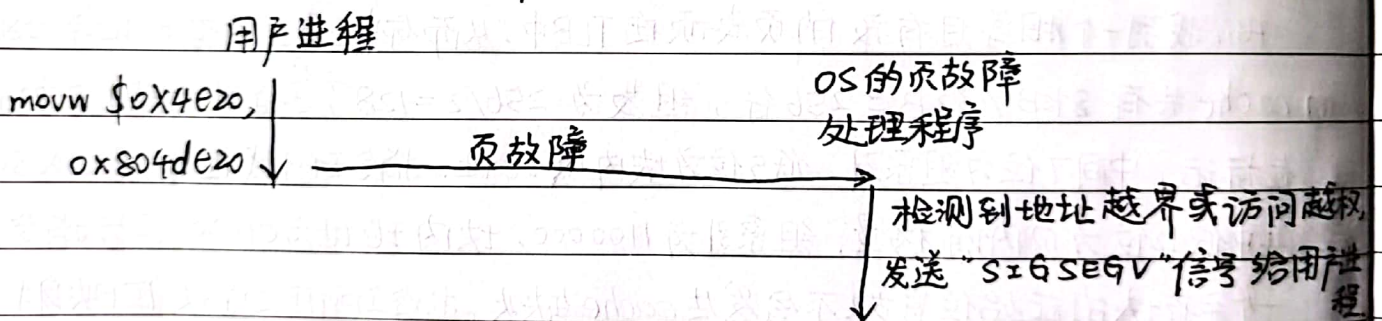 用户进程
movw $0x4e20,
0x804de20
页故障
OS的页故障
处理程序
检测到地址越界或访问越权,
发送“SIGSEGV”信号给用户进
程